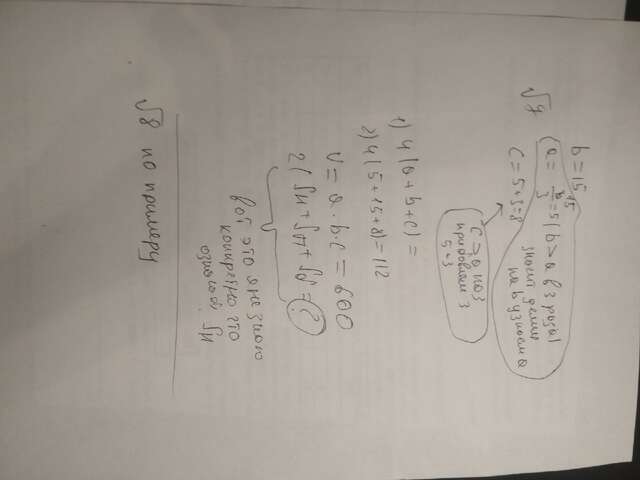 √7
b=15
(a = b/3 = 15/3 = 5 (b > a в 3 раза)
значит делим
на b узнаем a
c = 5+3=8
c > a на 3
прибовляем 3
5+3
1) 4(a+b+c) =
2) 4(5+15+8)=112
V = a·b·c = 600
2(Sн+Sп+Sб = ?
вот это я не знаю
конкретно что
означает Sн
√8 по примеру